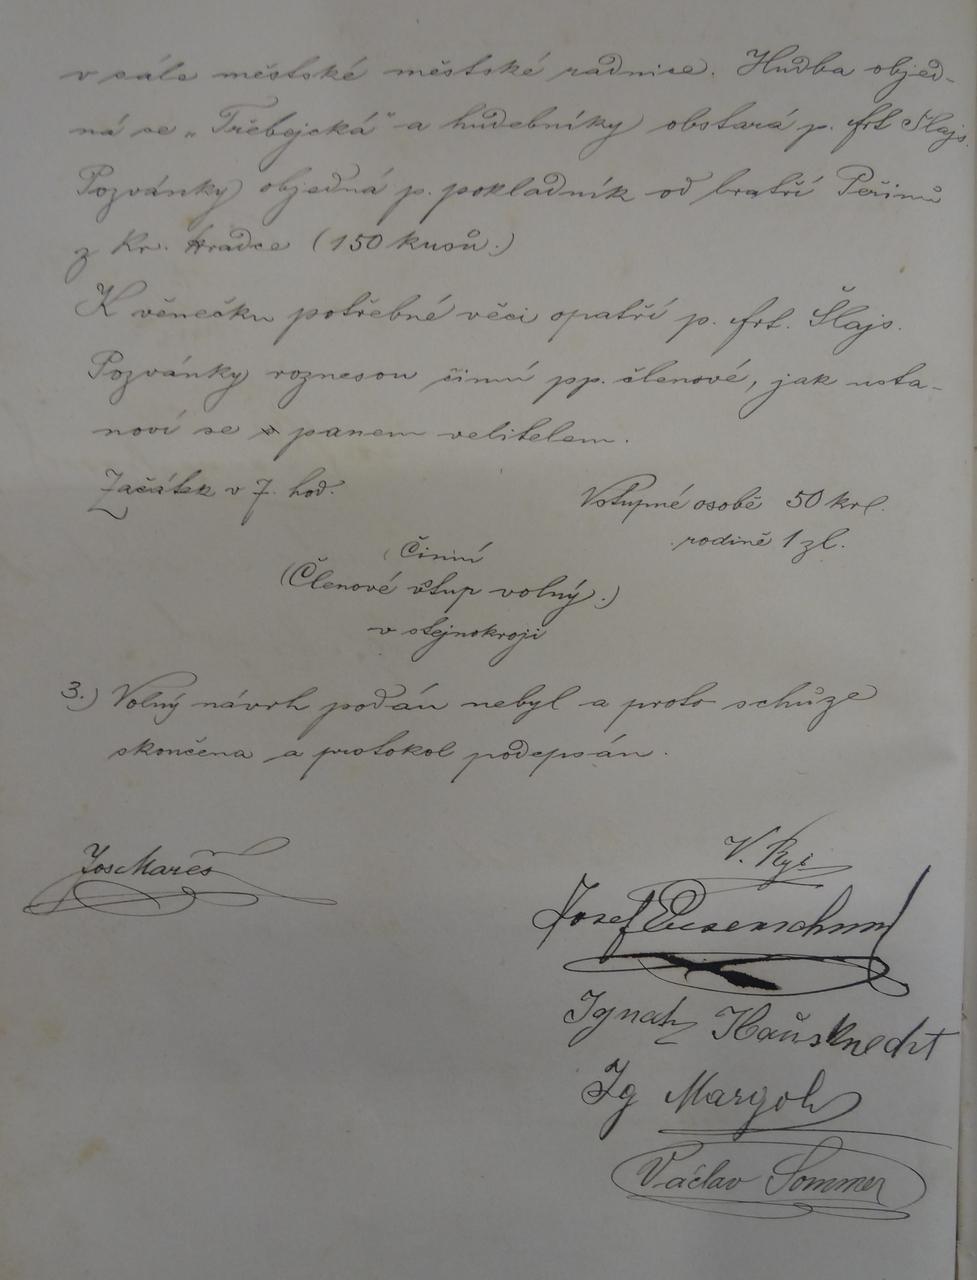 v sále městské městské radnice. Hudba objed-
ná se „Třebejcká" a hudebníky obstará p. frt. Šlajs.
Pozvánky objedná p. pokladník od bratří Peřinů
z Kr. Hradce (150 kusů.)
K věnečku potřebné věci opatří p. frt. Šlajs.
Pozvánky roznesou činní pp. členové, jak usta-
noví se s panem velitelem.
Začátek v 7. hod.
Vstupné osobě 50 krl.
rodině 1 zl.
Činní
(Členové vstup volný.)
v stejnokroji
3.) Volný návrh podán nebyl a proto schůze
skončena a protokol podepsán.
Jos Mareš
V.
Josef Eisenschim
Ignatz Hausknecht
Ig Margol
Václav Sommer